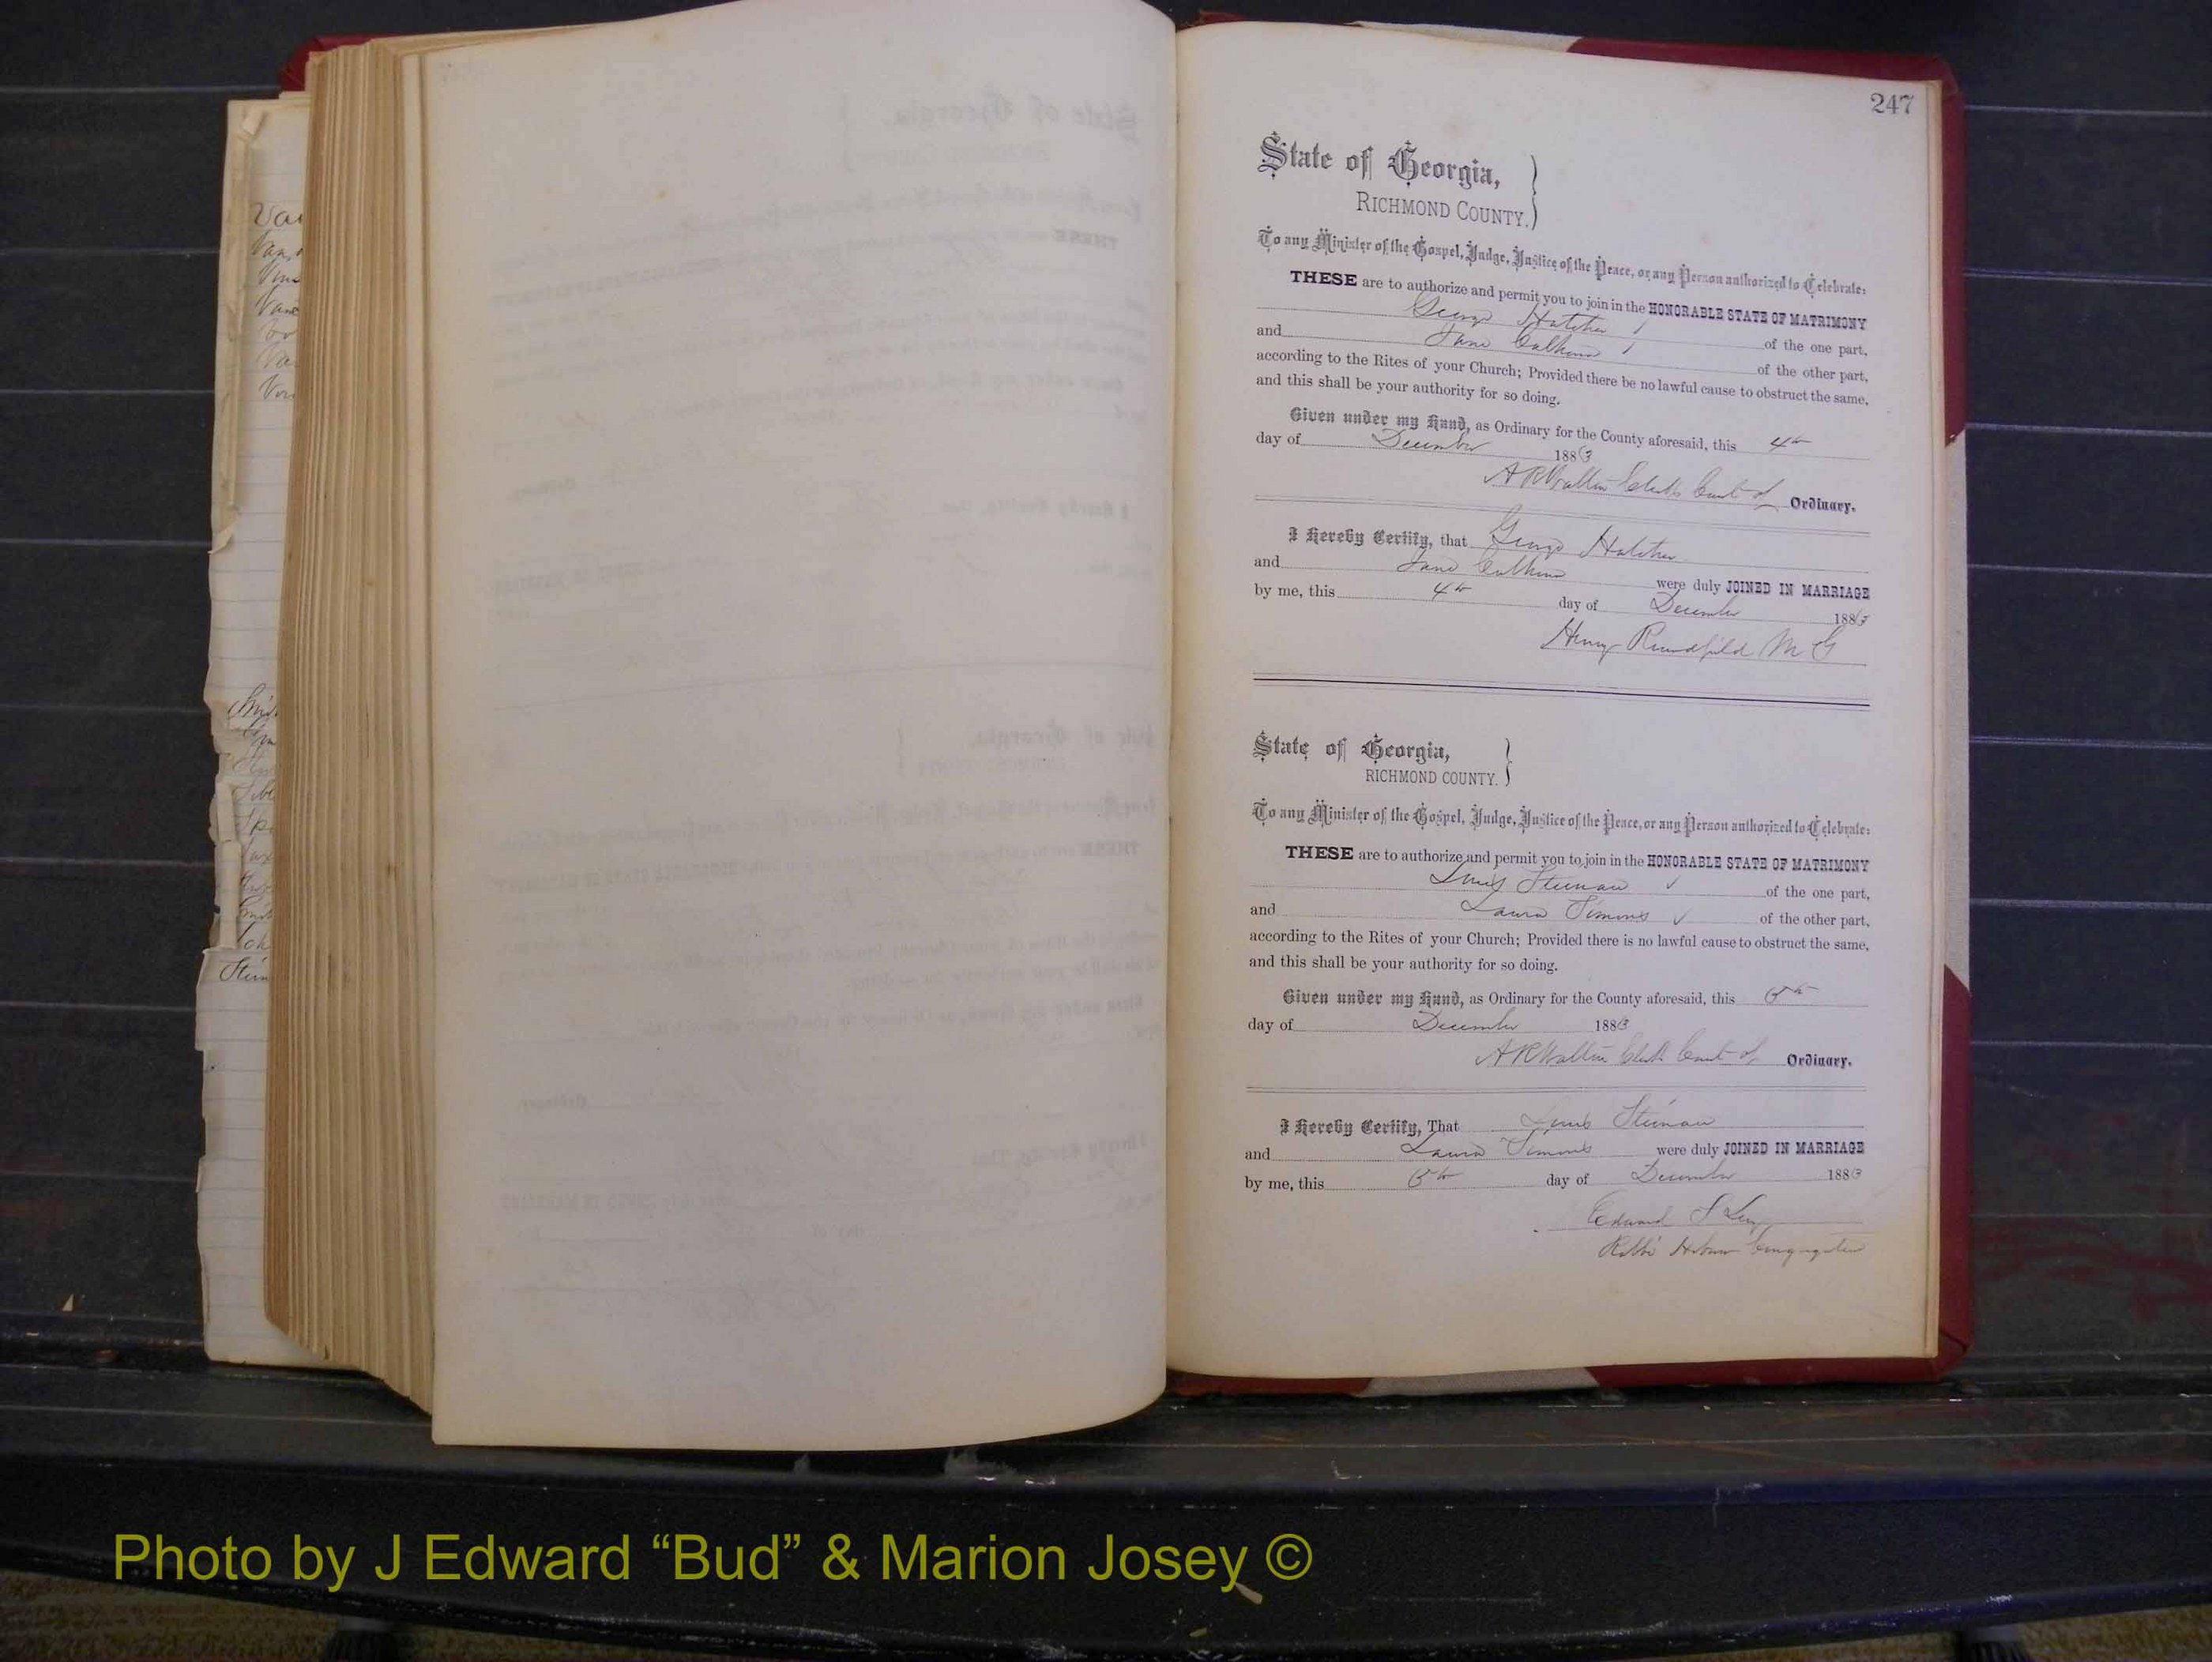 247
State of Georgia,
RICHMOND COUNTY.
To any Minister of the Gospel, Judge, Justice of the Peace, or any Person authorized to Celebrate:
THESE are to authorize and permit you to join in the HONORABLE STATE OF MATRIMONY
George Hatcher of the one part,
and Jane Calhoun of the other part,
according to the Rites of your Church; Provided there be no lawful cause to obstruct the same,
and this shall be your authority for so doing.
Given under my Hand, as Ordinary for the County aforesaid, this 4th
day of December 1883
A R Walton Clerk Court of Ordinary.
I Hereby Certify, that George Hatcher
and Jane Calhoun were duly JOINED IN MARRIAGE
by me, this 4th day of December 1883
Henry M G
State of Georgia,
RICHMOND COUNTY.
To any Minister of the Gospel, Judge, Justice of the Peace, or any Person authorized to Celebrate:
THESE are to authorize and permit you to join in the HONORABLE STATE OF MATRIMONY
Louis Steinau of the one part,
and Laura Simons of the other part,
according to the Rites of your Church; Provided there is no lawful cause to obstruct the same,
and this shall be your authority for so doing.
Given under my Hand, as Ordinary for the County aforesaid, this 5th
day of December 1883
A R Walton Clerk Court of Ordinary.
I Hereby Certify, That Louis Steinau
and Laura Simons were duly JOINED IN MARRIAGE
by me, this 5th day of December 1883
Edward S Levy
Rabbi Hebrew Congregation
Photo by J Edward “Bud” & Marion Josey ©